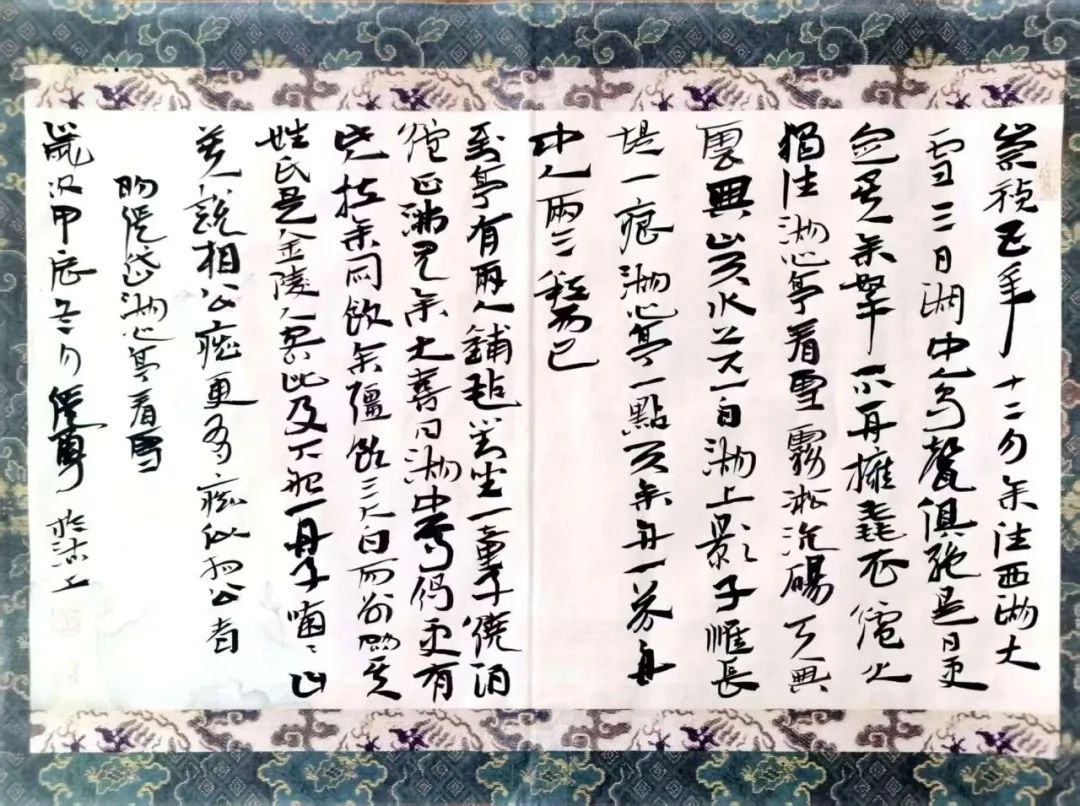 崇禎五年十二月余住西湖大
雪三日湖中人鳥聲俱絕是日更
定矣余拏一小舟擁毳衣爐火
獨往湖心亭看雪霧淞沆碭天與
雲與山与水上下一白湖上影子惟長
堤一痕湖心亭一點与余舟一芥舟
中人兩三粒而已
到亭有兩人鋪氈對坐一童子燒酒
爐正沸見余大喜曰湖中焉得更有
此人拉余同飲余彊飲三大白而別問其
姓氏是金陵人客此及下船舟子喃〻曰
莫說相公痴更有痴似相公者
明張岱湖心亭看雪
歲次甲辰冬月張 於沽上